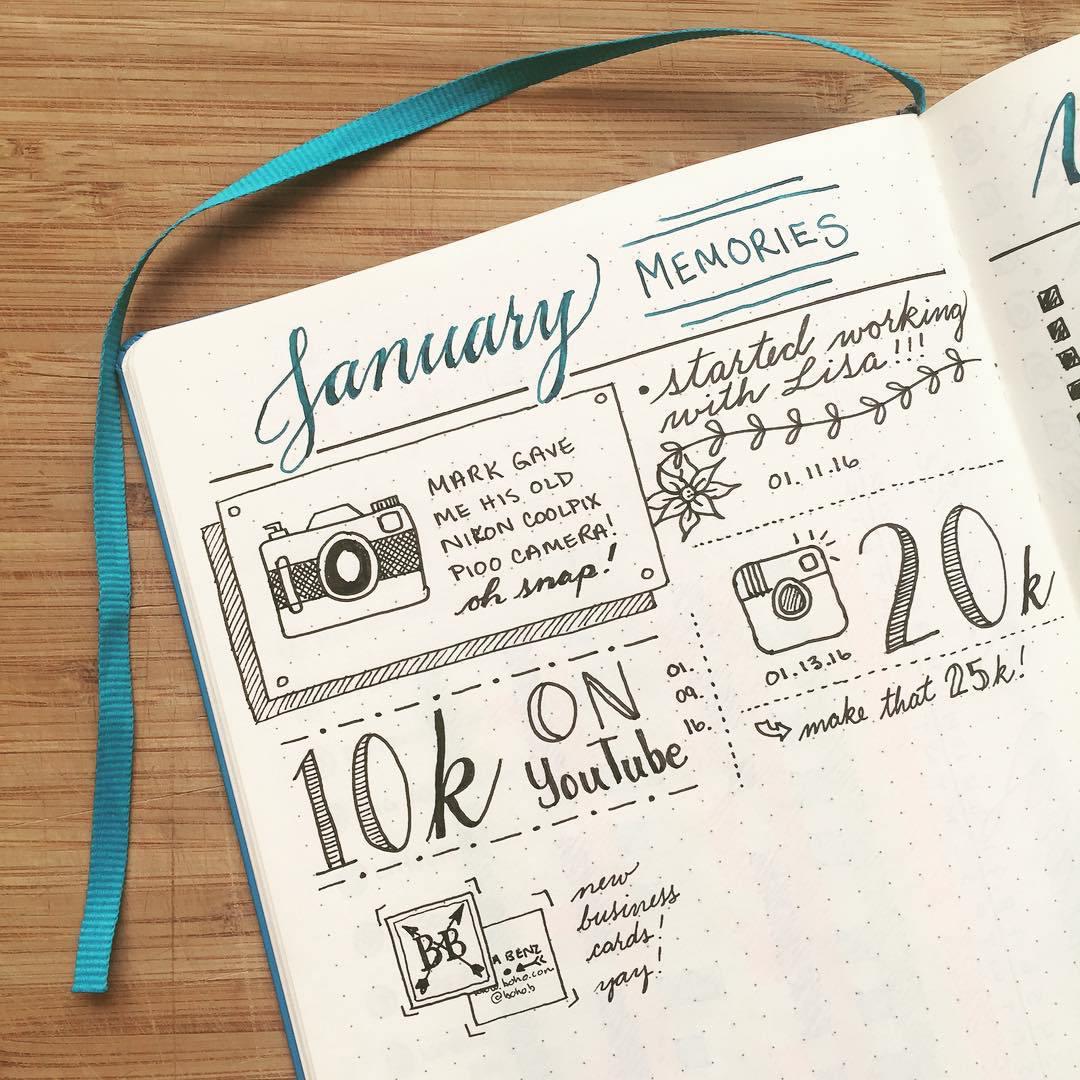 January
MEMORIES
MARK GAVE
ME HIS OLD
NIKON COOLPIX
P100 CAMERA!
oh snap!
• started working
with Lisa!!!
01.11.16
20k
01.13.16
make that 25k!
10k
ON
YouTube
01.
09.
16.
BB
A BENZ
www.boho.com
@boho.b
new
business
cards!
yay!